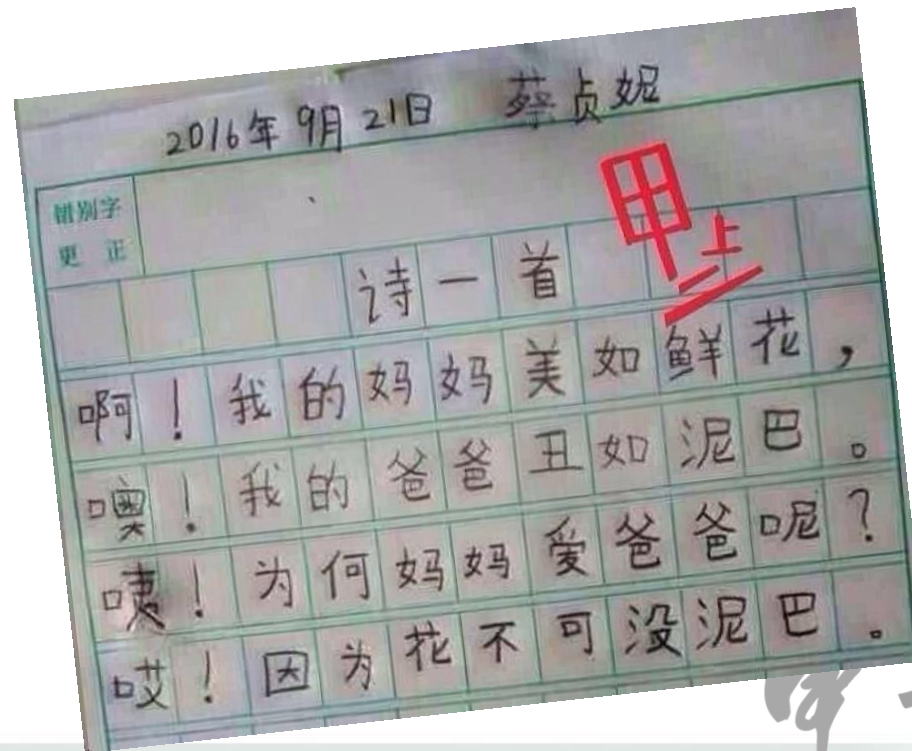 2016年9月21日 蔡贞妮
错别字
更正
甲上
诗一首
啊！我的妈妈美如鲜花，
噢！我的爸爸丑如泥巴。
咦！为何妈妈爱爸爸呢？
哎！因为花不可没泥巴。